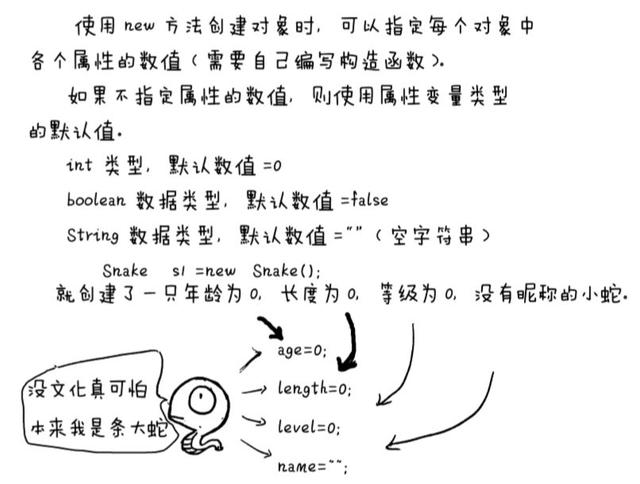 使用new方法创建对象时，可以指定每个对象中
各个属性的数值（需要自己编写构造函数）。
如果不指定属性的数值，则使用属性变量类型
的默认值。
int 类型，默认数值=0
boolean 数据类型，默认数值=false
String 数据类型，默认数值=""（空字符串）
Snake s1 =new Snake();
就创建了一只年龄为0，长度为0，等级为0，没有昵称的小蛇。
age=0;
length=0;
level=0;
name="";
没文化真可怕
本来我是条大蛇